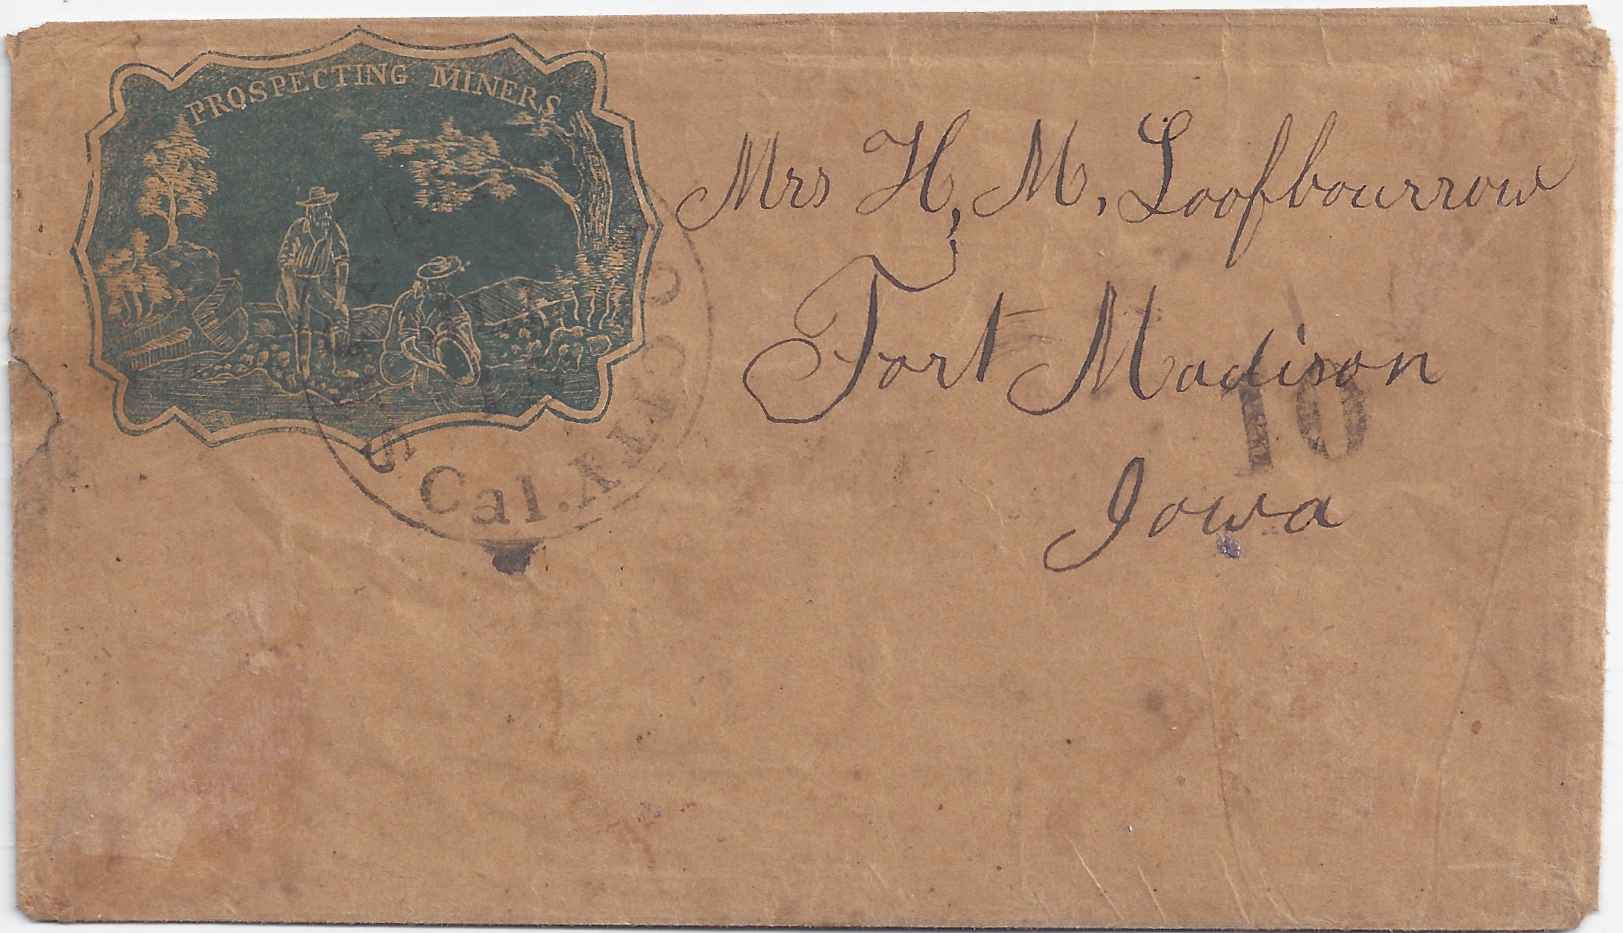 PROSPECTING MINERS
Mrs H, M, Loofbourrow
Fort Madison
10
Iowa
CITY Cal.